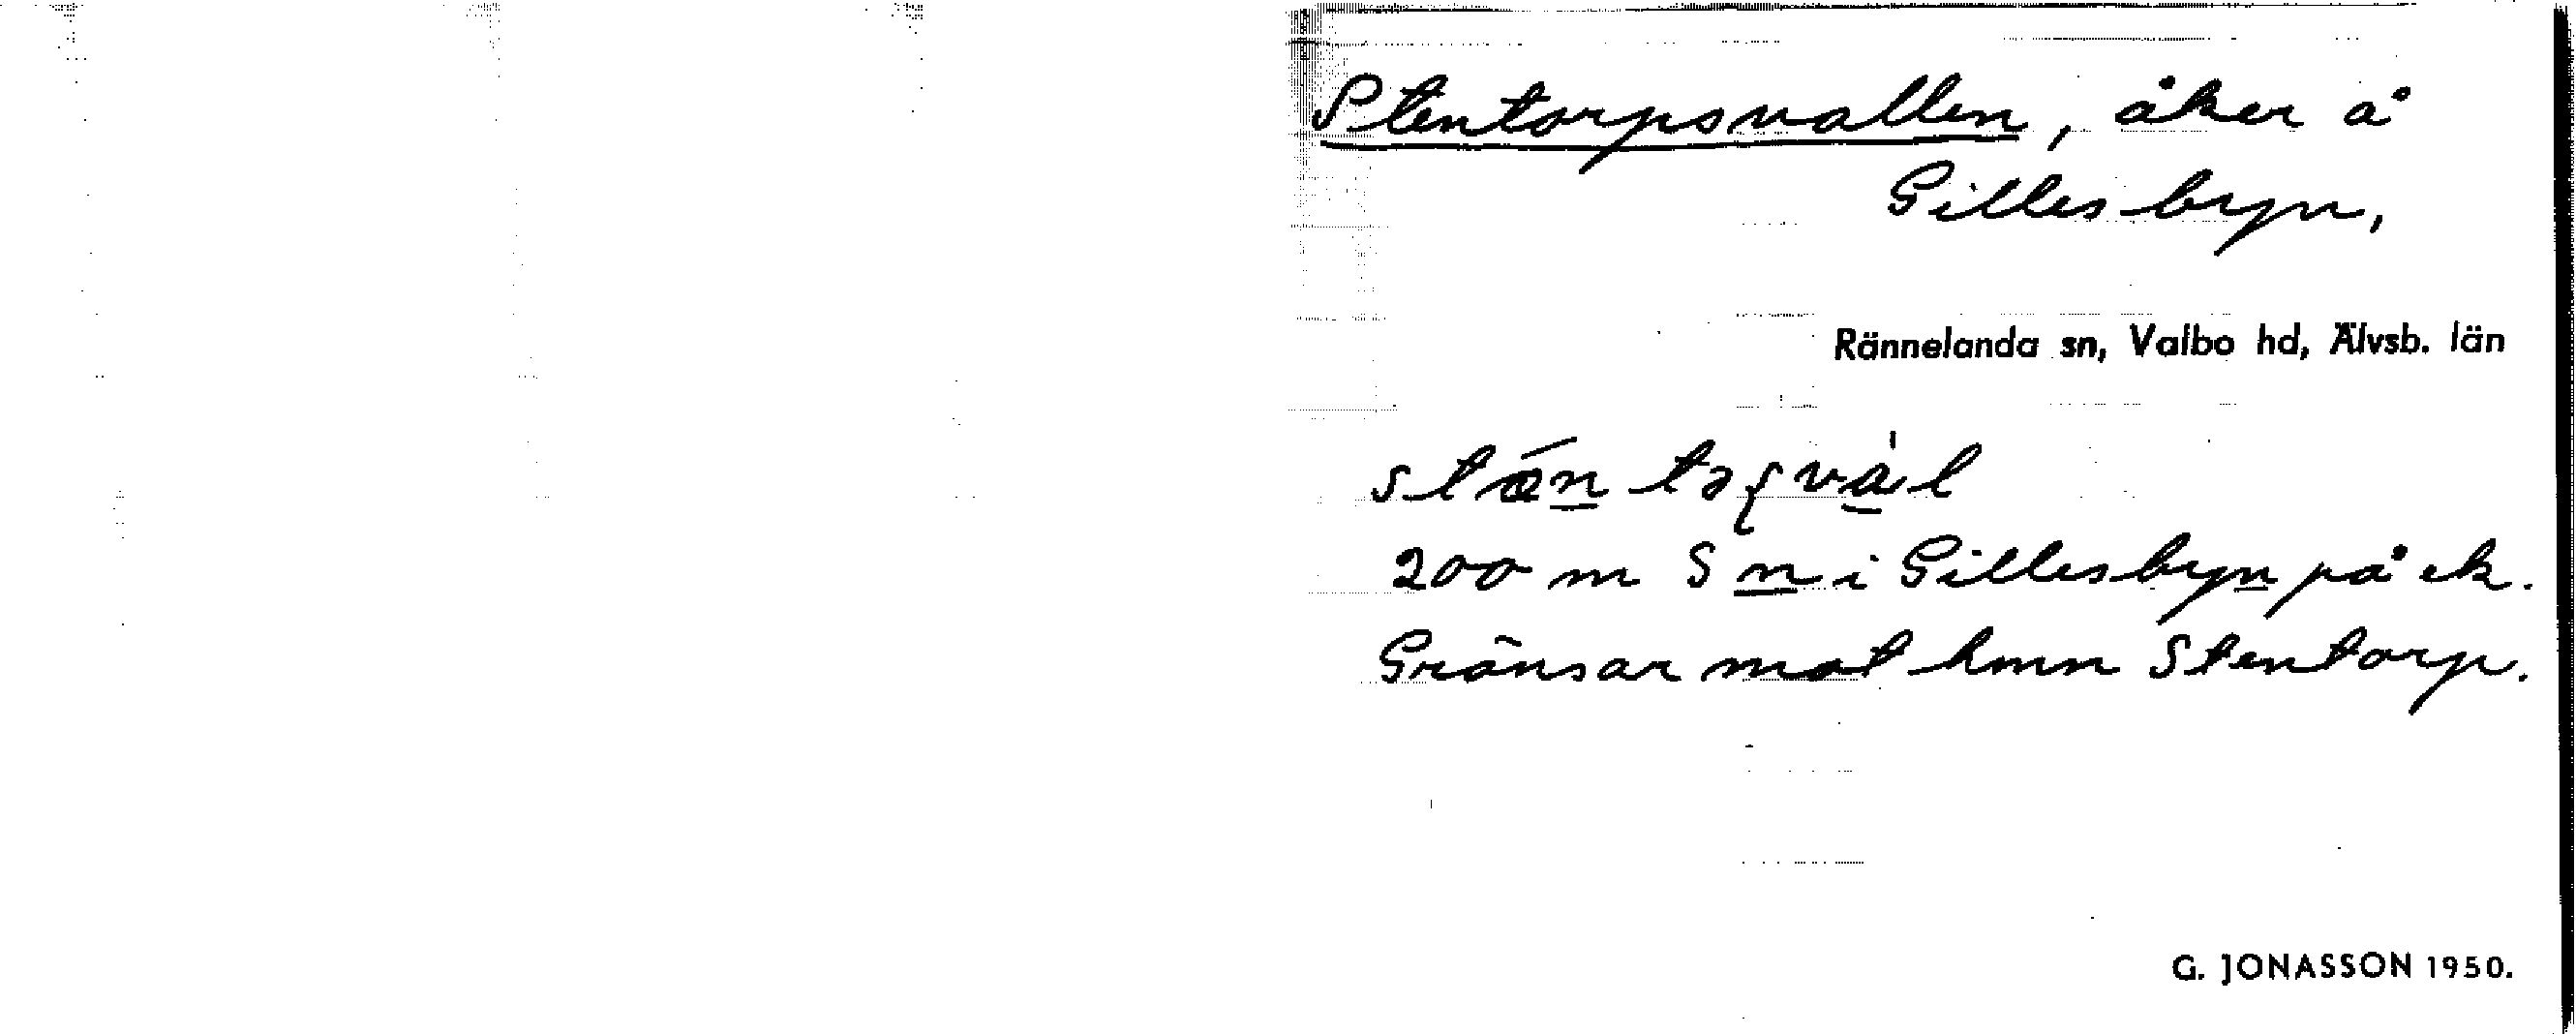 Stentorpsvallen, åker å
Gillesbyn,
Rännelanda sn, Valbo hd, Älvsb. län
200 m S n i Gillesbyn på ek.
Gränsar mot hmn Stentorp.
G. JONASSON 1950.